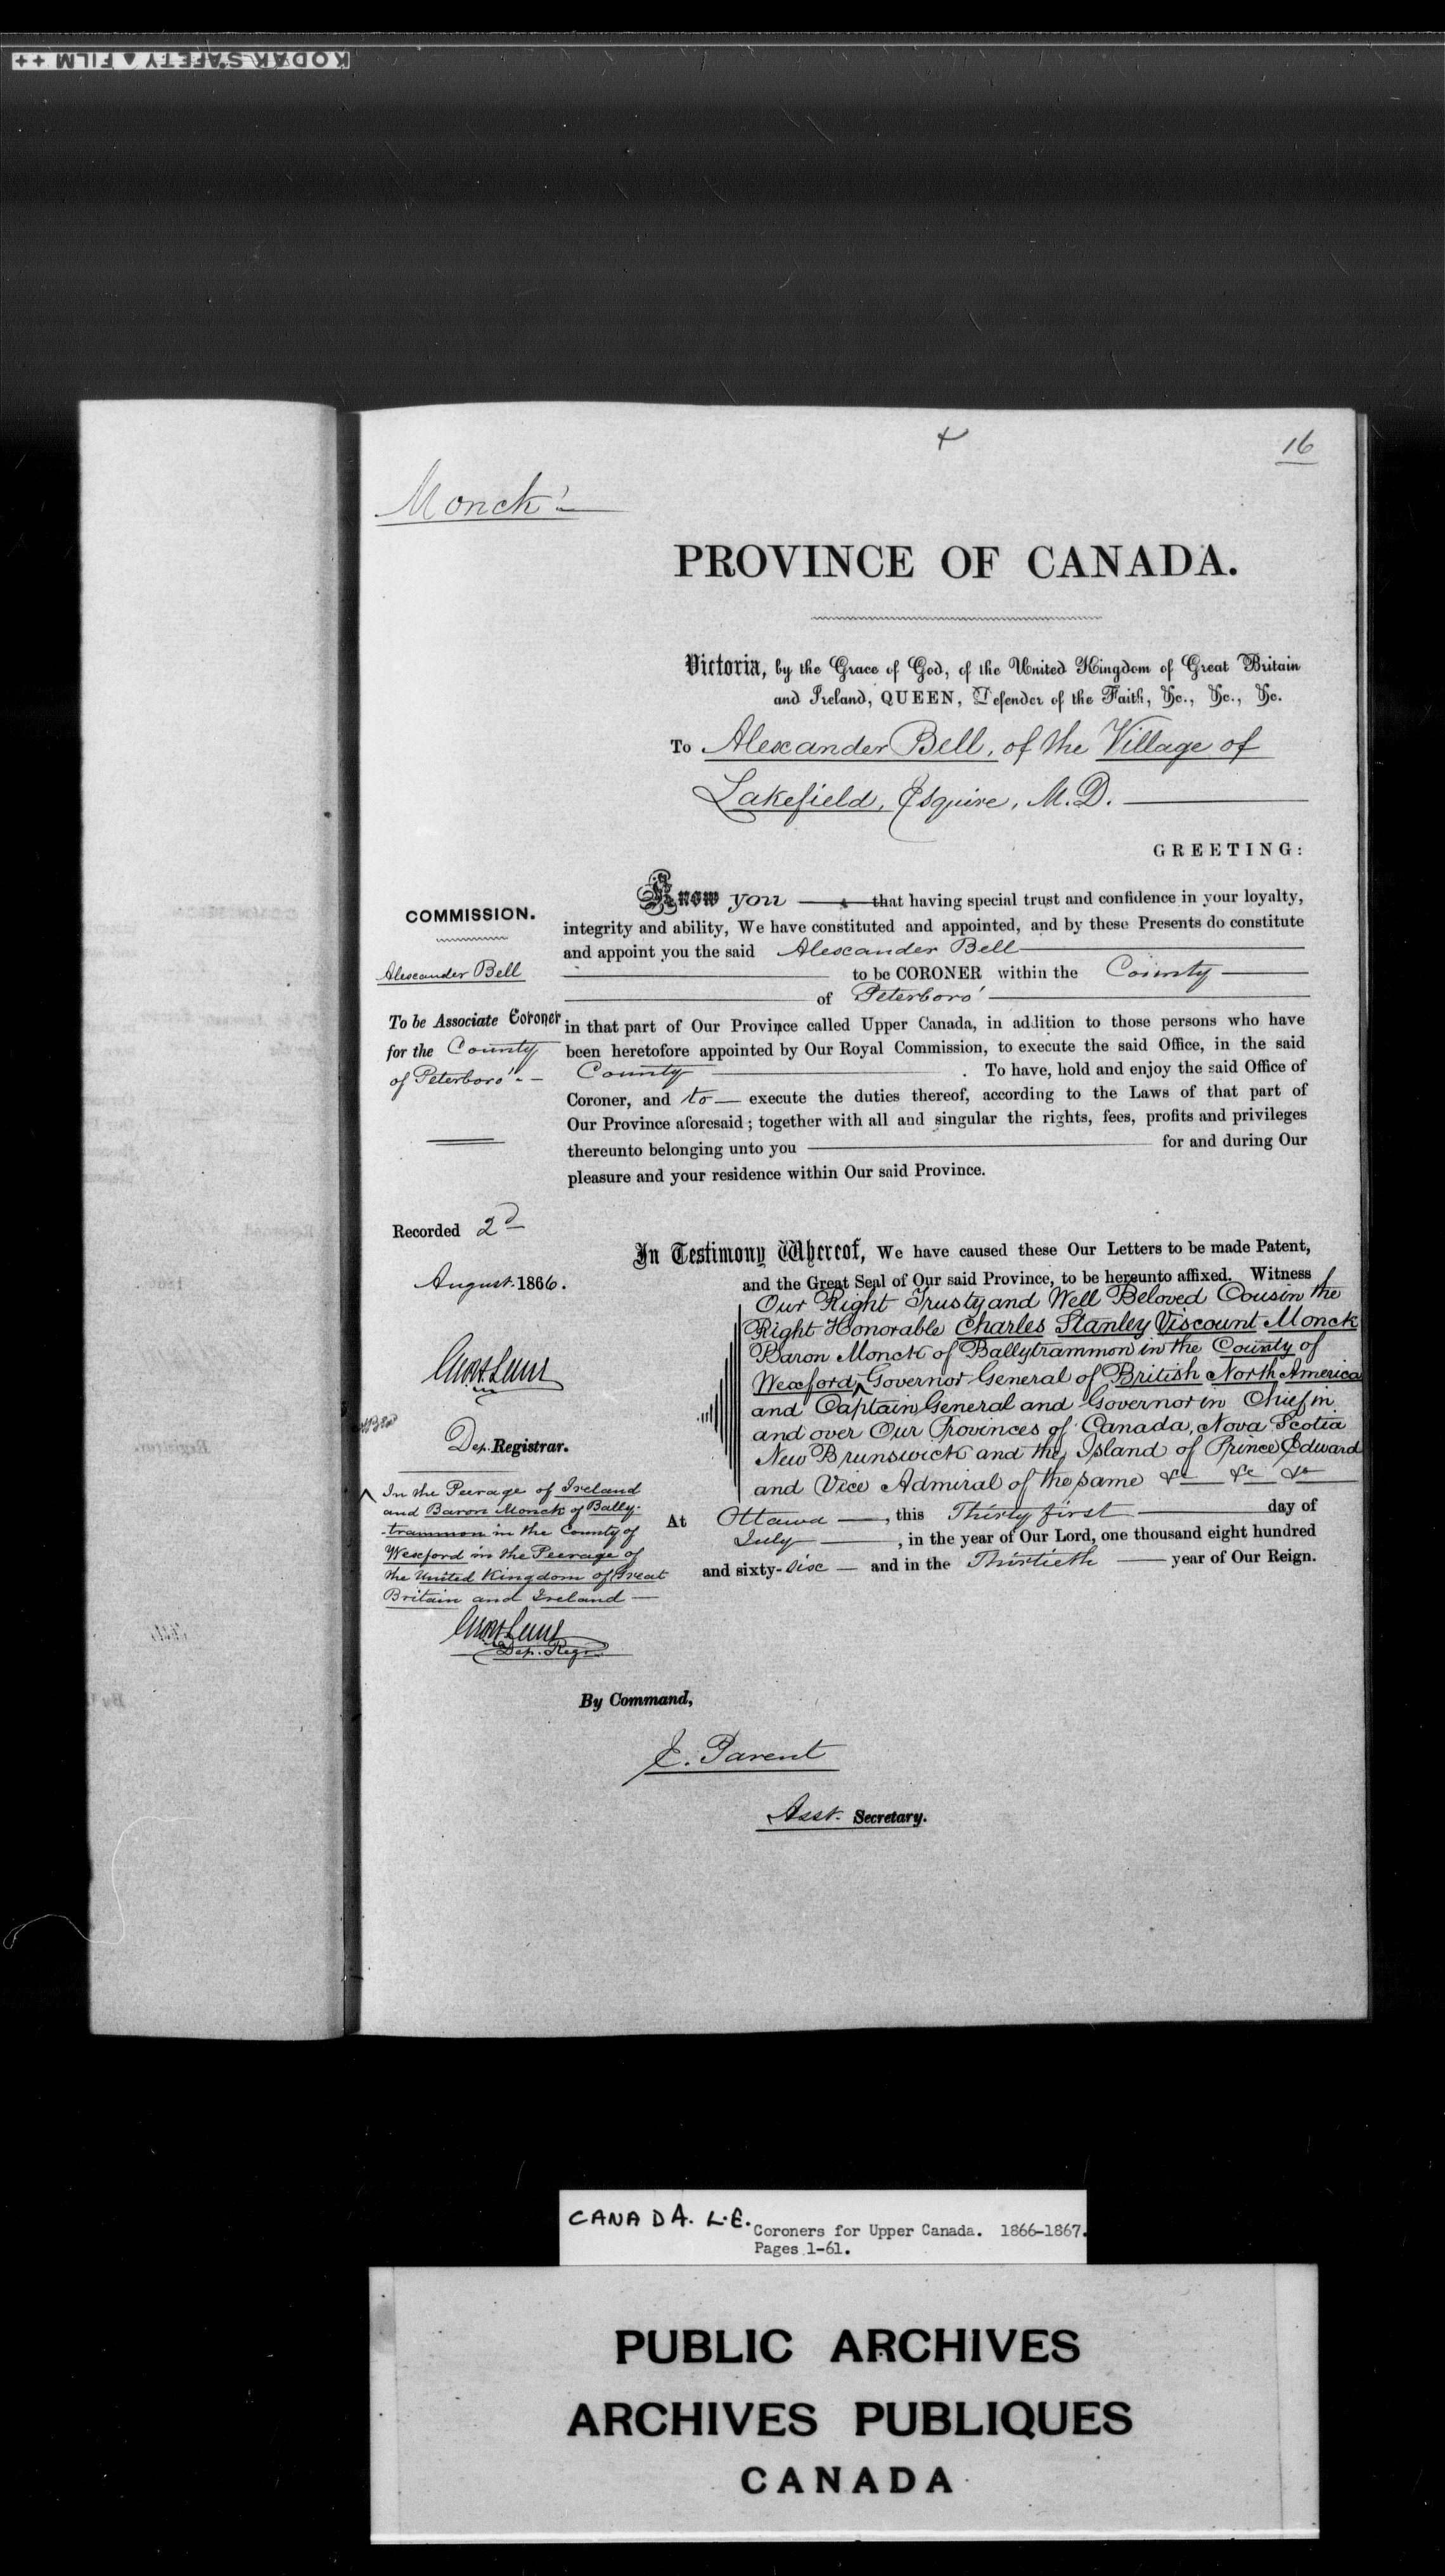 KODAK SAFETY ▲ FILM ++
+
16
Monck
PROVINCE OF CANADA.
Victoria, by the Grace of God, of the United Kingdom of Great Britain
and Ireland, QUEEN, Defender of the Faith, &c., &c., &c.
To Alexander Bell, of the Village of
Lakefield, Esquire, M.D.
GREETING:
Know you that having special trust and confidence in your loyalty,
integrity and ability, We have constituted and appointed, and by these Presents do constitute
and appoint you the said Alexander Bell
to be CORONER within the County
of Peterboro'
in that part of Our Province called Upper Canada, in addition to those persons who have
been heretofore appointed by Our Royal Commission, to execute the said Office, in the said
County . To have, hold and enjoy the said Office of
Coroner, and to — execute the duties thereof, according to the Laws of that part of
Our Province aforesaid; together with all and singular the rights, fees, profits and privileges
thereunto belonging unto you for and during Our
pleasure and your residence within Our said Province.
COMMISSION.
Alexander Bell
To be Associate Coroner
for the County
of Peterboro'.
Recorded 2d
August 1866.
Dep. Registrar.
In Testimony Whereof, We have caused these Our Letters to be made Patent,
and the Great Seal of Our said Province, to be hereunto affixed. Witness
Our Right Trusty and Well Beloved Cousin the
Right Honorable Charles Stanley Viscount Monck
Baron Monck of Ballytrammon in the County of
Wexford, ^ Governor General of British North America
and Captain General and Governor in Chief in
and over Our Provinces of Canada, Nova Scotia
New Brunswick and the Island of Prince Edward
and Vice Admiral of the same &c &c &c
At Ottawa —, this Thirty first day of
July —, in the year of Our Lord, one thousand eight hundred
and sixty-six — and in the Thirtieth — year of Our Reign.
^ In the Peerage of Ireland
and Baron Monck of Bally-
trammon in the County of
Wexford in the Peerage of
the United Kingdom of Great
Britain and Ireland —
Dep. Regr
By Command,
E. Parent
Asst. Secretary.
CANADA. L.E. Coroners for Upper Canada. 1866-1867.
Pages 1-61.
PUBLIC ARCHIVES
ARCHIVES PUBLIQUES
CANADA